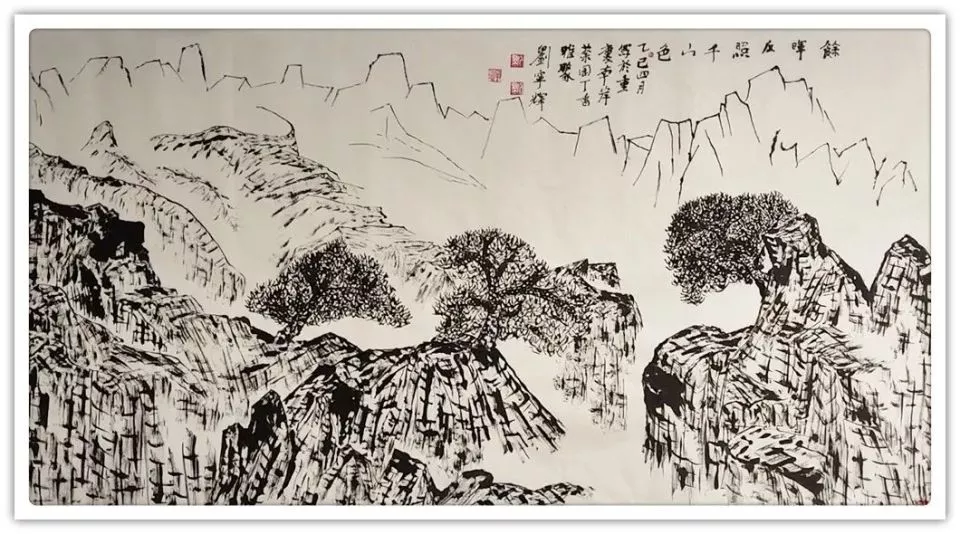 餘暉反照千山色
乙巳四月
寫於重
慶南岸
菜園丁香
雅聚
劉寧輝